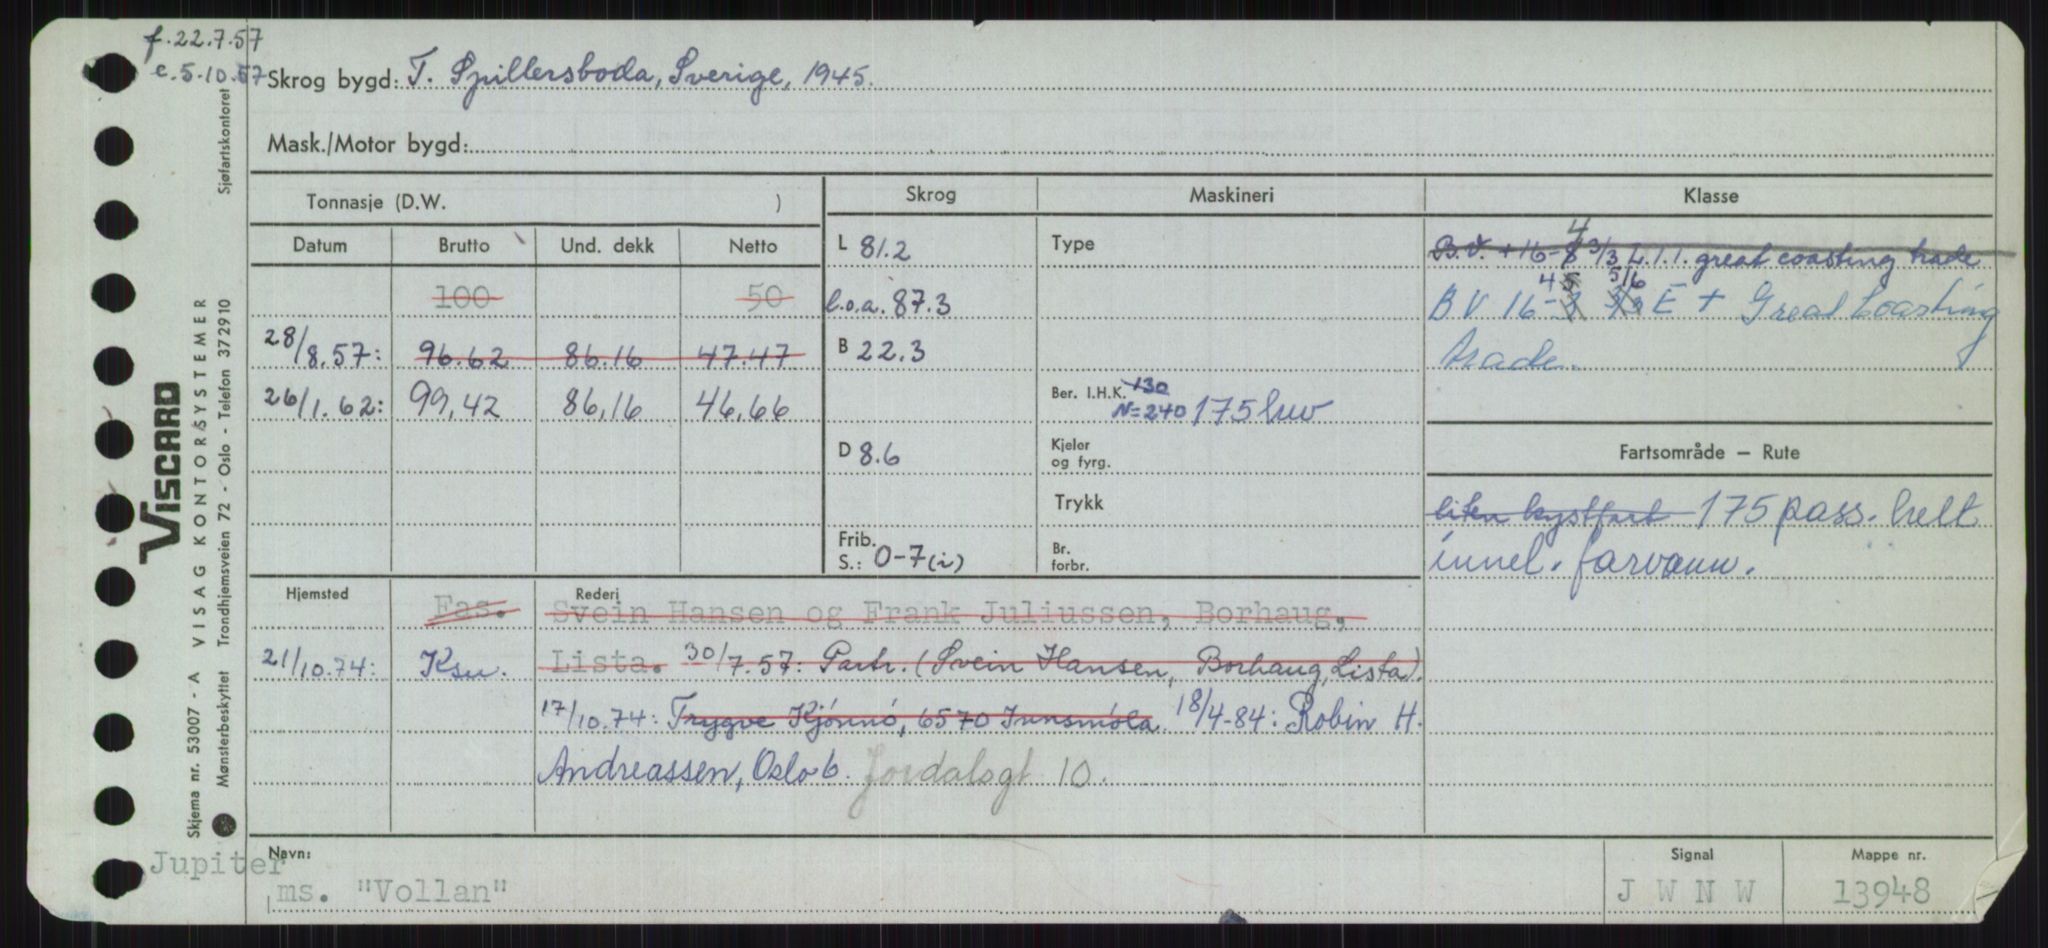 f. 22.7.57
c. 5.10.57
Skrog bygd: T. Spillersboda, Sverige, 1945.
Mask./Motor bygd:
Tonnasje (D.W. )
Datum Brutto Und. dekk Netto
100 50
28/8.57: 96.62 86.16 47.47
26/1.62: 99,42 86,16 46,66
Skrog
L 81.2
l.o.a. 87.3
B 22.3
D 8.6
Frib.
S.: 0-7 (i)
Maskineri
Type
Ber. I.H.K. 130
N=240 175 
Kjeler
og fyrg.
Trykk
Br.
forbr.
Klasse
4
B.V. +16-8 3/3 L.1.1. great coasting trade
4 5/6
BV 16- E + Great Coasting
trade.
Fartsområde – Rute
liten kystfart 175 pass. helt
innel. farvann.
Hjemsted Rederi
Fas. Svein Hansen og Frank Juliussen, Borhaug,
21/10.74: Ksu. Lista. 30/7.57: Partr. (Svein Hansen, Borhaug, Lista).
17/10.74: Trygve Kjönnö, 6570 Innsmöla. 18/4-84: Robin H.
Andreassen, Oslo 6. Jordalsgt 10.
Navn:
Jupiter
ms. "Vollan"
Signal
J W N W
Mappe nr.
13948
VISCARD
VISAG KONTORSYSTEMER
Sjøfartskontoret
Skjema nr. 53007 - A
Mønsterbeskyttet Trondhjemsveien 72 - Oslo - Telefon 372910